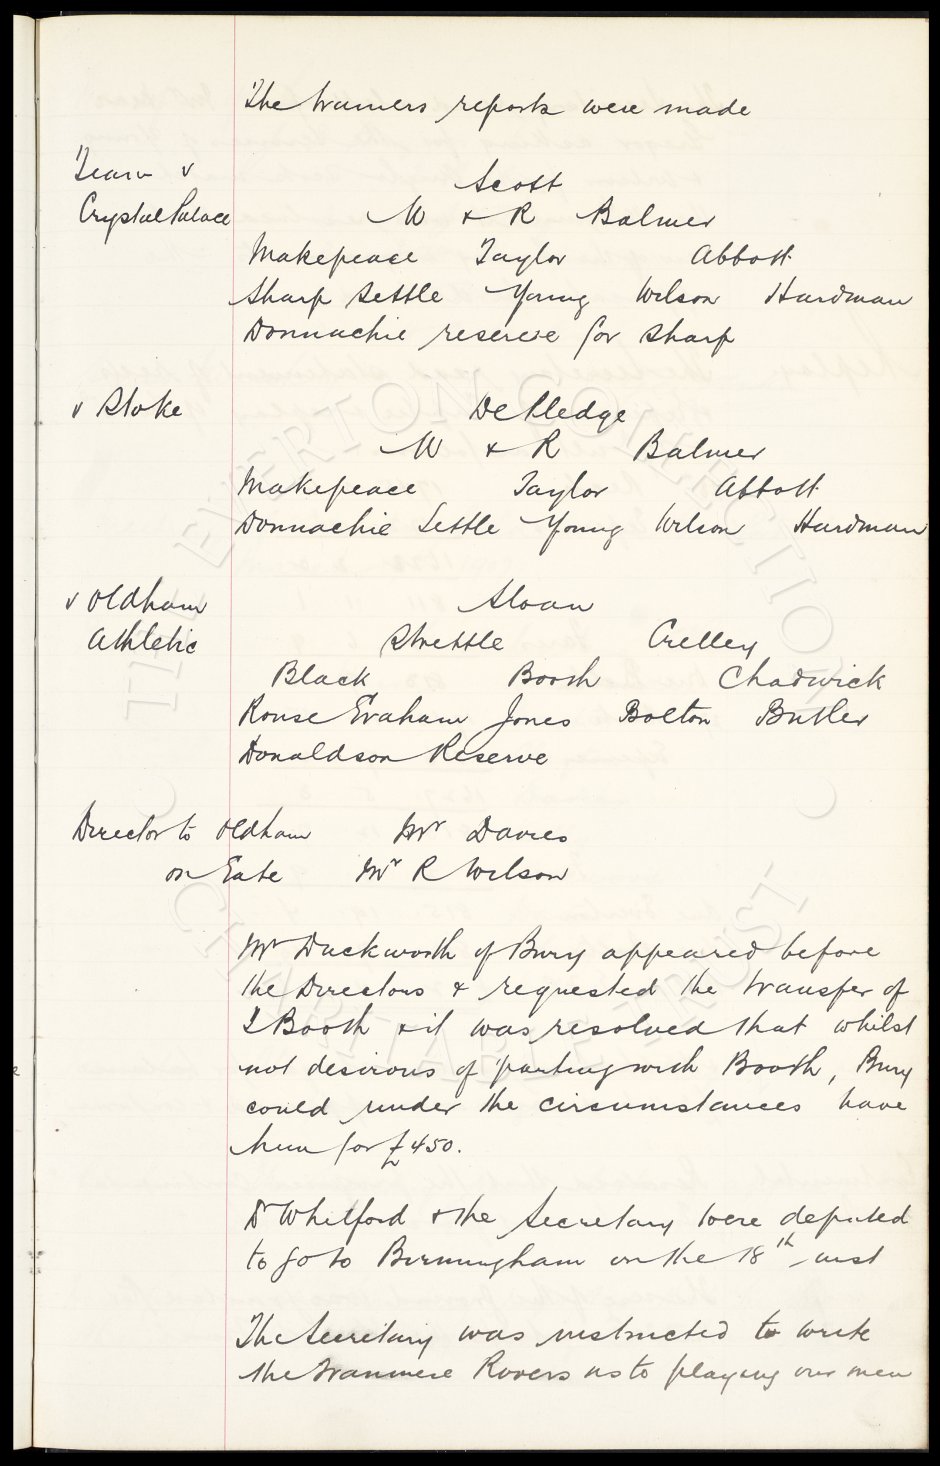 The trainers reports were made
Team v
Scott
Crystal Palace
W & R Balmer
Makepeace Taylor Abbott
Sharp Settle Young Wilson Hardman
Donnachie reserve for Sharp
v Stoke
De Pledge
W & R Balmer
Makepeace Taylor Abbott
Donnachie Settle Young Wilson Hardman
v Oldham
Athletic
Sloan
Strettle Crelley
Black Booth Chadwick
Rouse Graham Jones Bolton Butler
Donaldson Reserve
Director to Oldham Mr Davies
on Gate Mr R Wilson
Mr Duckworth of Bury appeared before
the Directors & requested the transfer of
T Booth & it was resolved that whilst
not desirous of parting with Booth, Bury
could under the circumstances have
him for £450.
Dr Whitford & the Secretary were deputed
to go to Birmingham on the 18th inst
The Secretary was instructed to write
the Tranmere Rovers as to playing our men
THE EVERTON COLLECTION
CHARITABLE TRUST